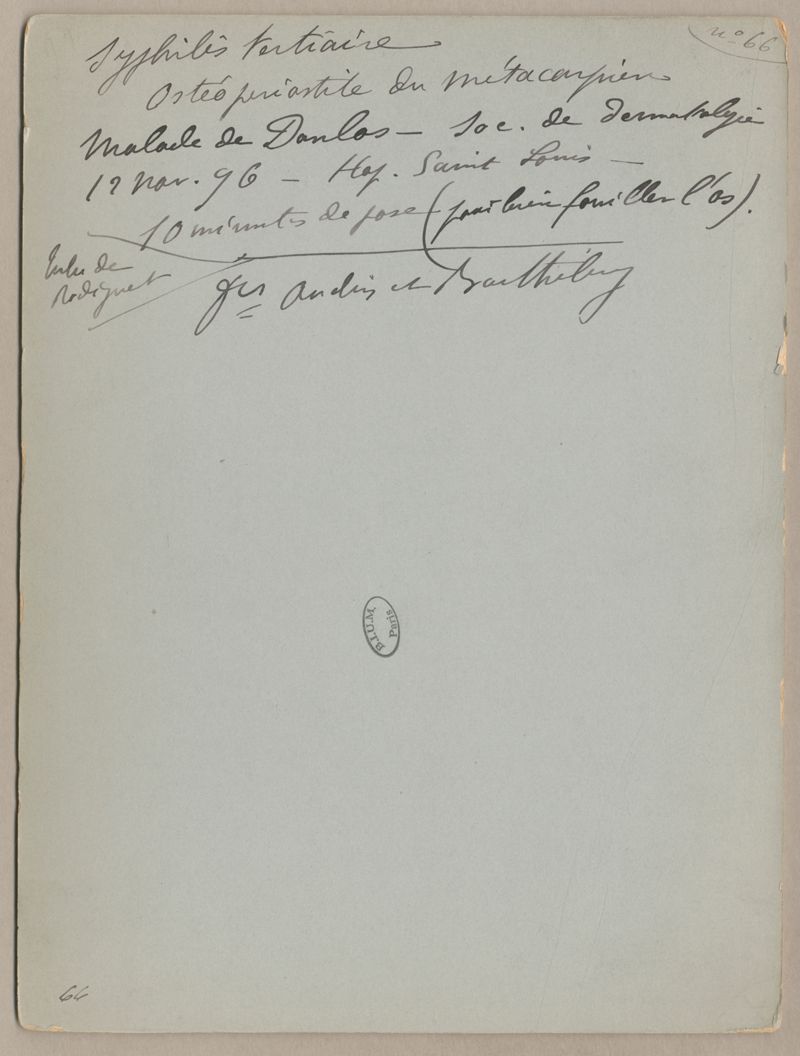 nº 66
Syphilis tertiaire
Ostéopériostite du métacarpien
Malade de Danlos — Soc. de dermatologie
12 Nov. 96 — Hop. Saint Louis —
10 minutes de pose (pour bien fouiller l'os).
Tube de
Radiguet
Oudin et Barthélemy
B.I.U.M.
Paris
66